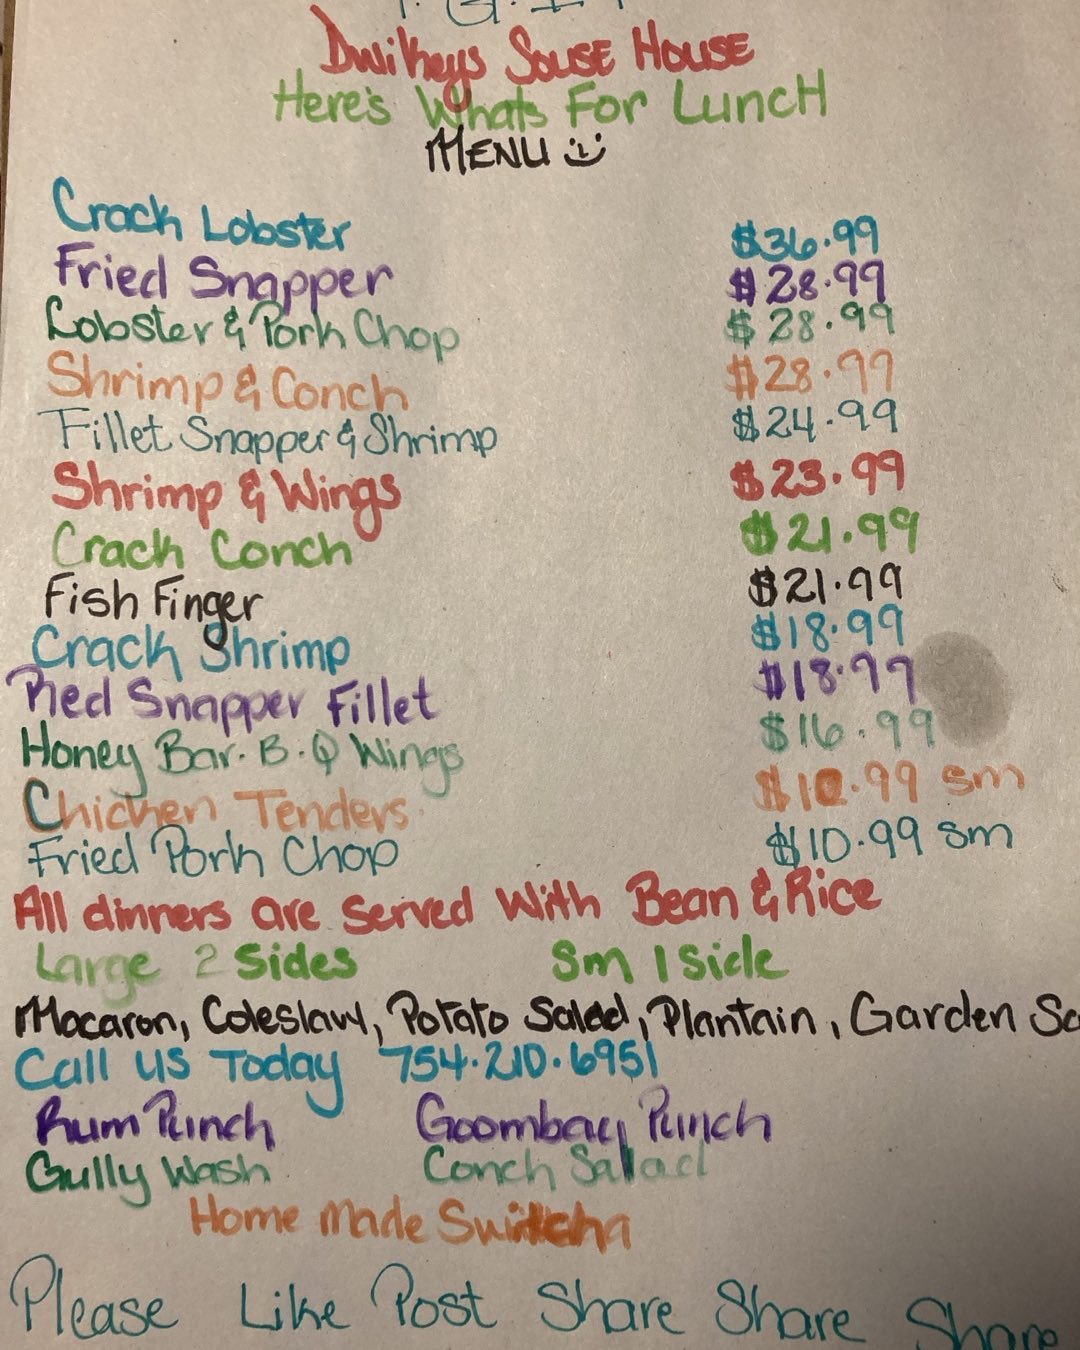 T.G.I.F
Dwikeys Souse House
Here's Whats For Lunch
MENU
Crack Lobster $36.99
Fried Snapper $28.99
Lobster & Pork Chop $28.99
Shrimp & Conch $28.99
Fillet Snapper & Shrimp $24.99
Shrimp & Wings $23.99
Crack Conch $21.99
Fish Finger $21.99
Crack Shrimp $18.99
Red Snapper Fillet $18.99
Honey Bar.B.Q Wings $16.99
Chicken Tenders $10.99 sm
Fried Pork Chop $10.99 sm
All dinners are served with Bean & Rice
Large 2 Sides Sm 1 Side
Macaron, Coleslaw, Potato Salad, Plantain, Garden Sa
Call us Today 754.210.6951
Rum Punch Goombay Punch
Gully Wash Conch Salad
Home Made Switcha
Please Like Post Share Share Share